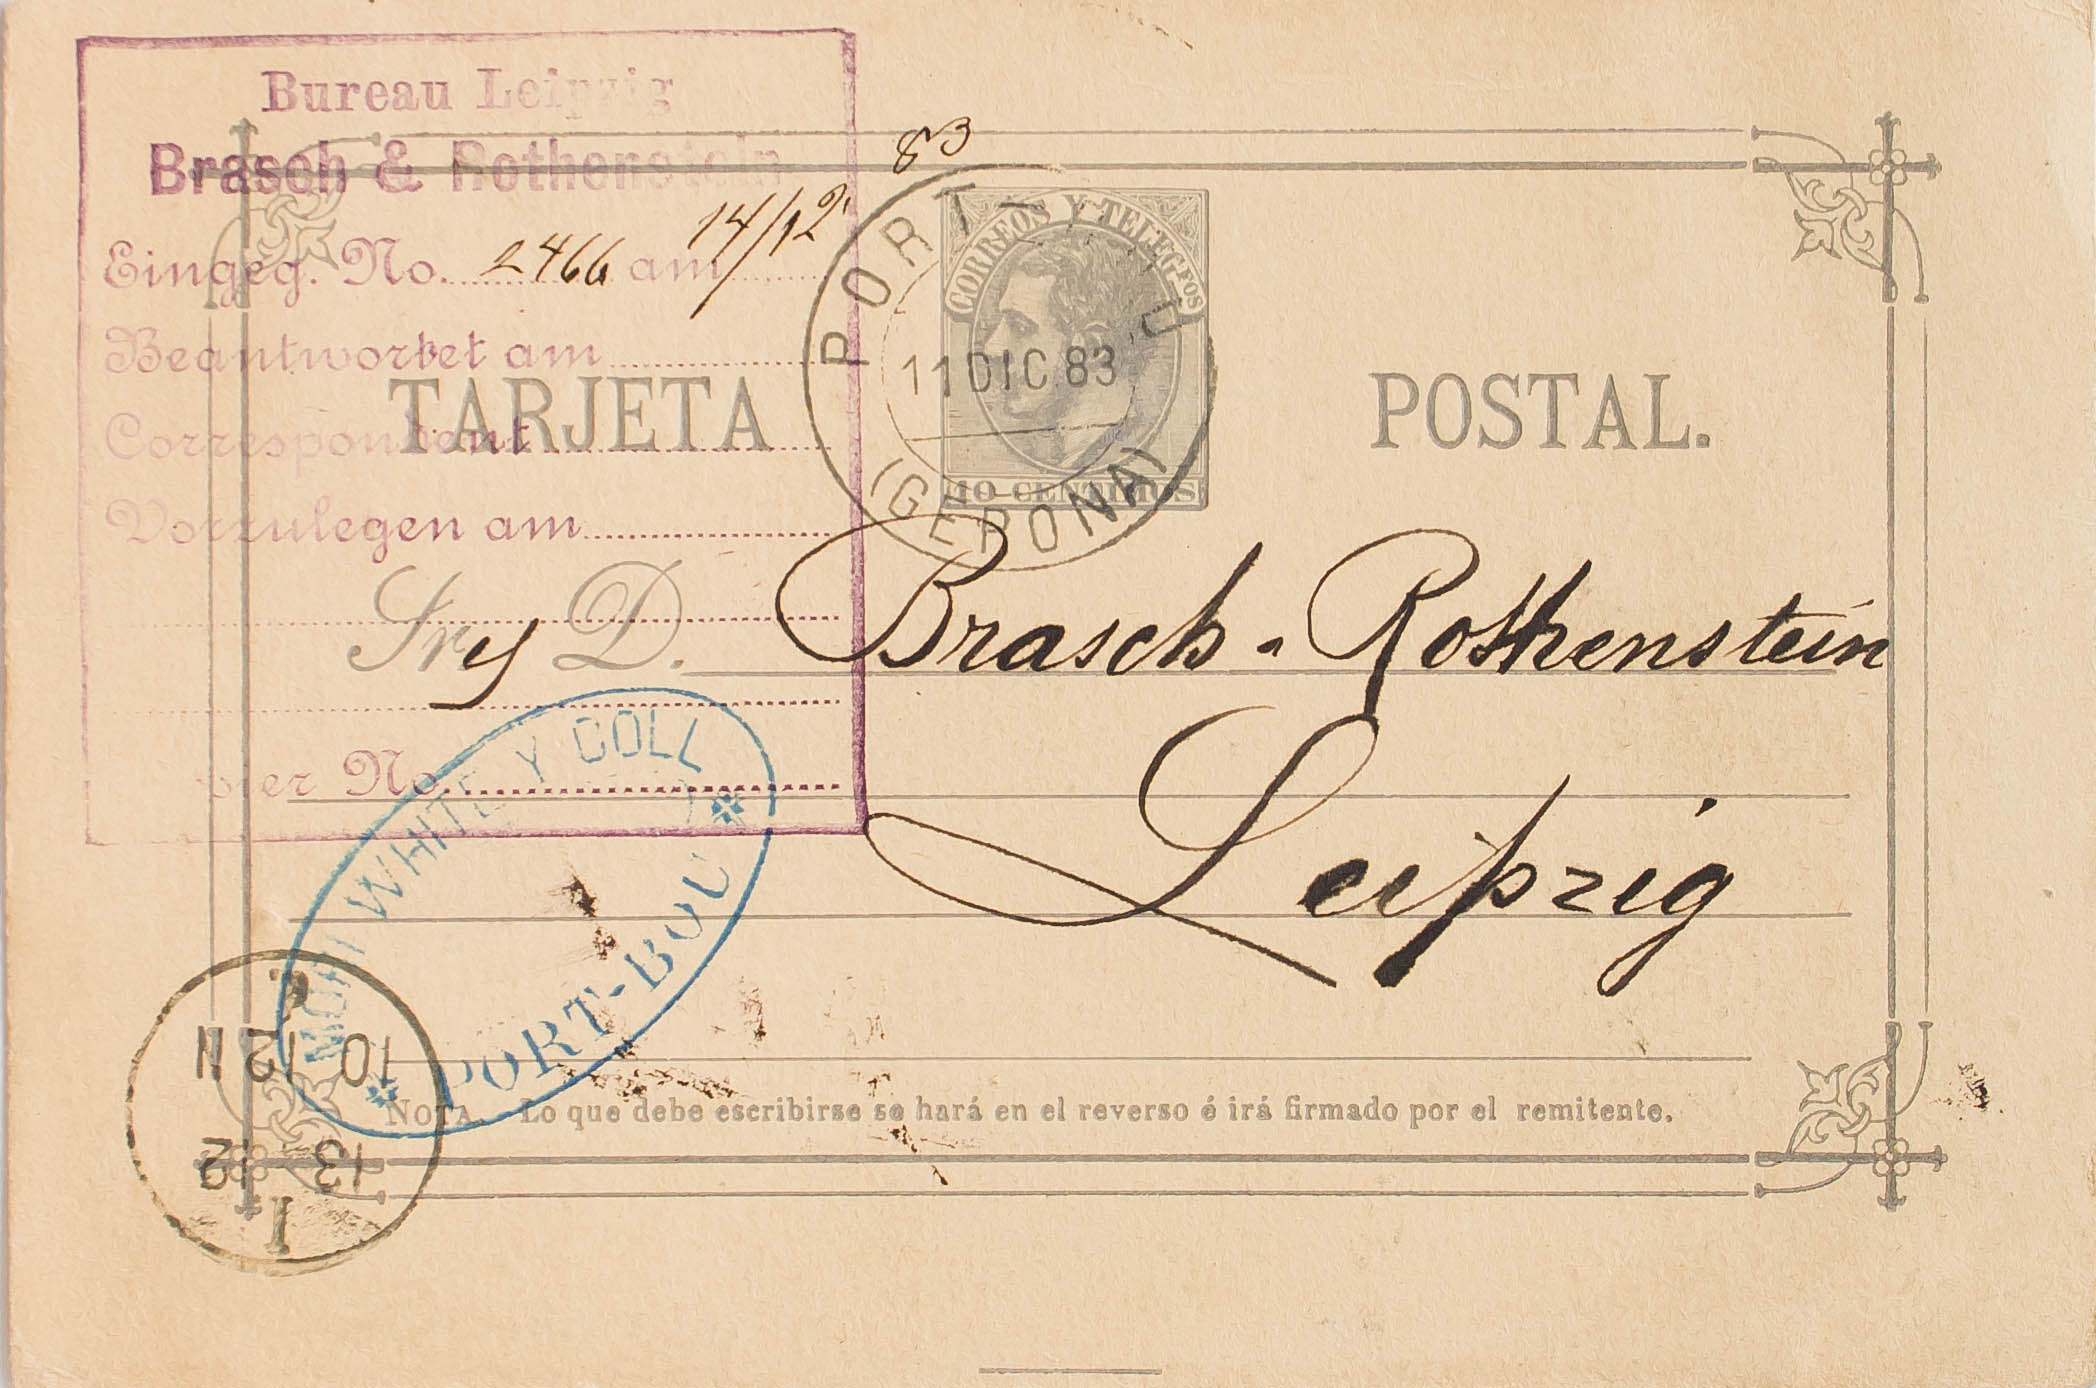 Bureau Leipzig
Brasch & Rothenstein
Eingeg. No. 2466 am 14/12 83
Beantwortet am
Correspondent
Vorzulegen am
No.
CORREOS Y TELEGFOS
10 CENTIMOS
PORT-BOU
11 DIC 83
(GERONA)
TARJETA POSTAL.
Sr. D. Brasch - Rothenstein
Leipzig
WHITE Y COLL
PORT-BOU
NOTA. Lo que debe escribirse se hará en el reverso é irá firmado por el remitente.
I
13 12
10 12 N